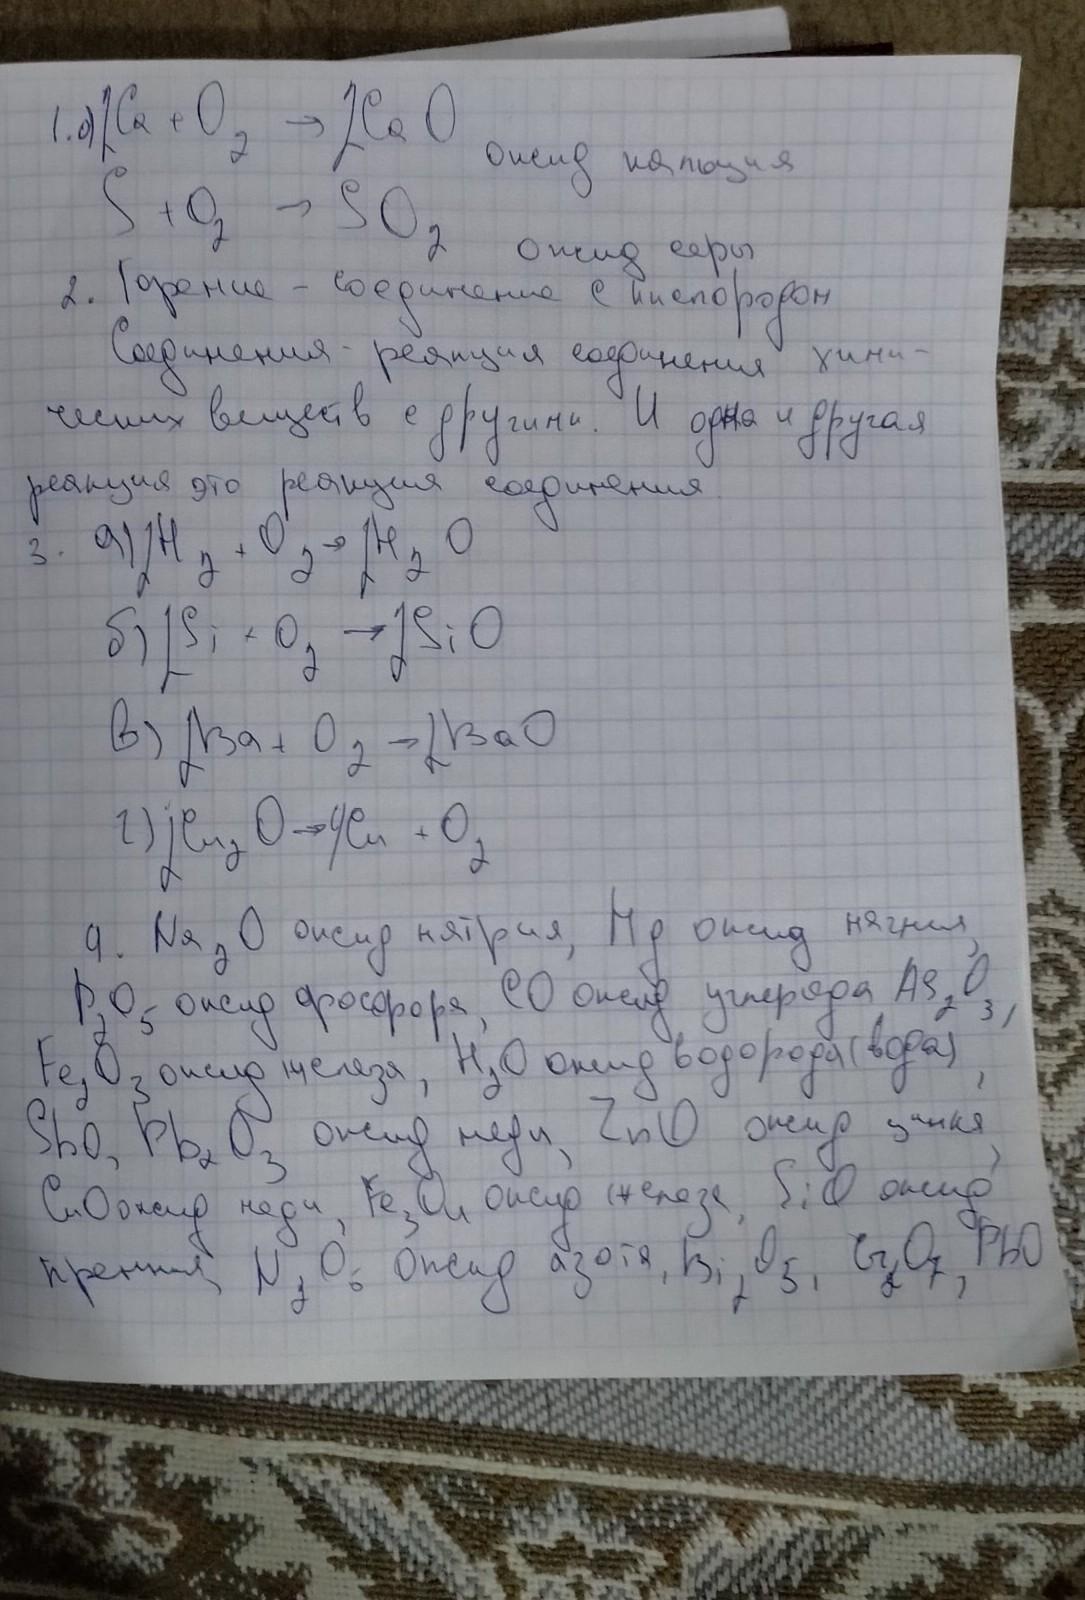 1.а) 2Ca + O2 → 2CaO оксид кальция
S + O2 → SO2 оксид серы
2. Горение - соединение с кислородом
Соединения - реакция соединения хими-
ческих веществ с другими. И одна и другая
реакция это реакция соединения.
3. а) 2H2 + O2 → 2H2O
б) 2Si + O2 → 2SiO
в) 2Ba + O2 → 2BaO
г) 2Cu2O → 4Cu + O2
4. Na2O оксид натрия, Mg оксид магния,
P2O5 оксид фосфора, CO оксид углерода, As2O3,
Fe2O3 оксид железа, H2O оксид водорода (вода),
SbO, Pb2O3 оксид меди, ZnO оксид цинка,
CuO оксид меди, Fe3O4 оксид железа, SiO оксид
кремния, N2O5 оксид азота, Bi2O5, Cr2O7, PbO